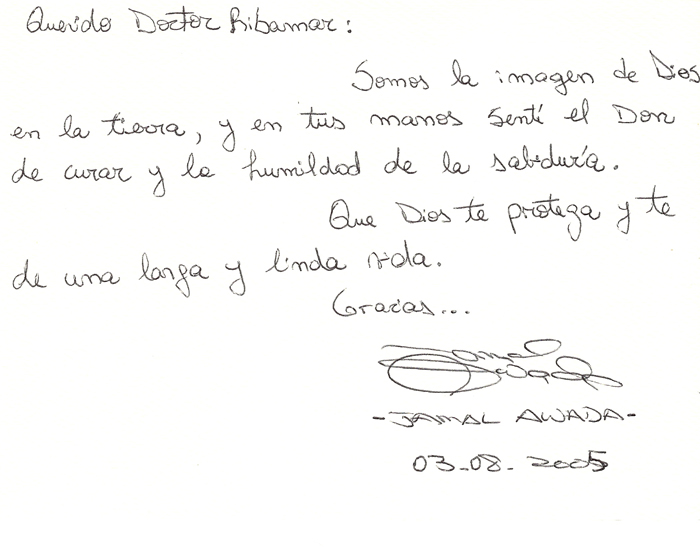 Querido Doctor Ribamar:
Somos la imagen de Dios
en la tierra, y en tus manos sentí el Don
de curar y la humildad de la sabiduría.
Que Dios te proteza y te
de una larga y linda vida.
Gracias...
Jamal Awada
-JAMAL AWADA-
03-08-2005